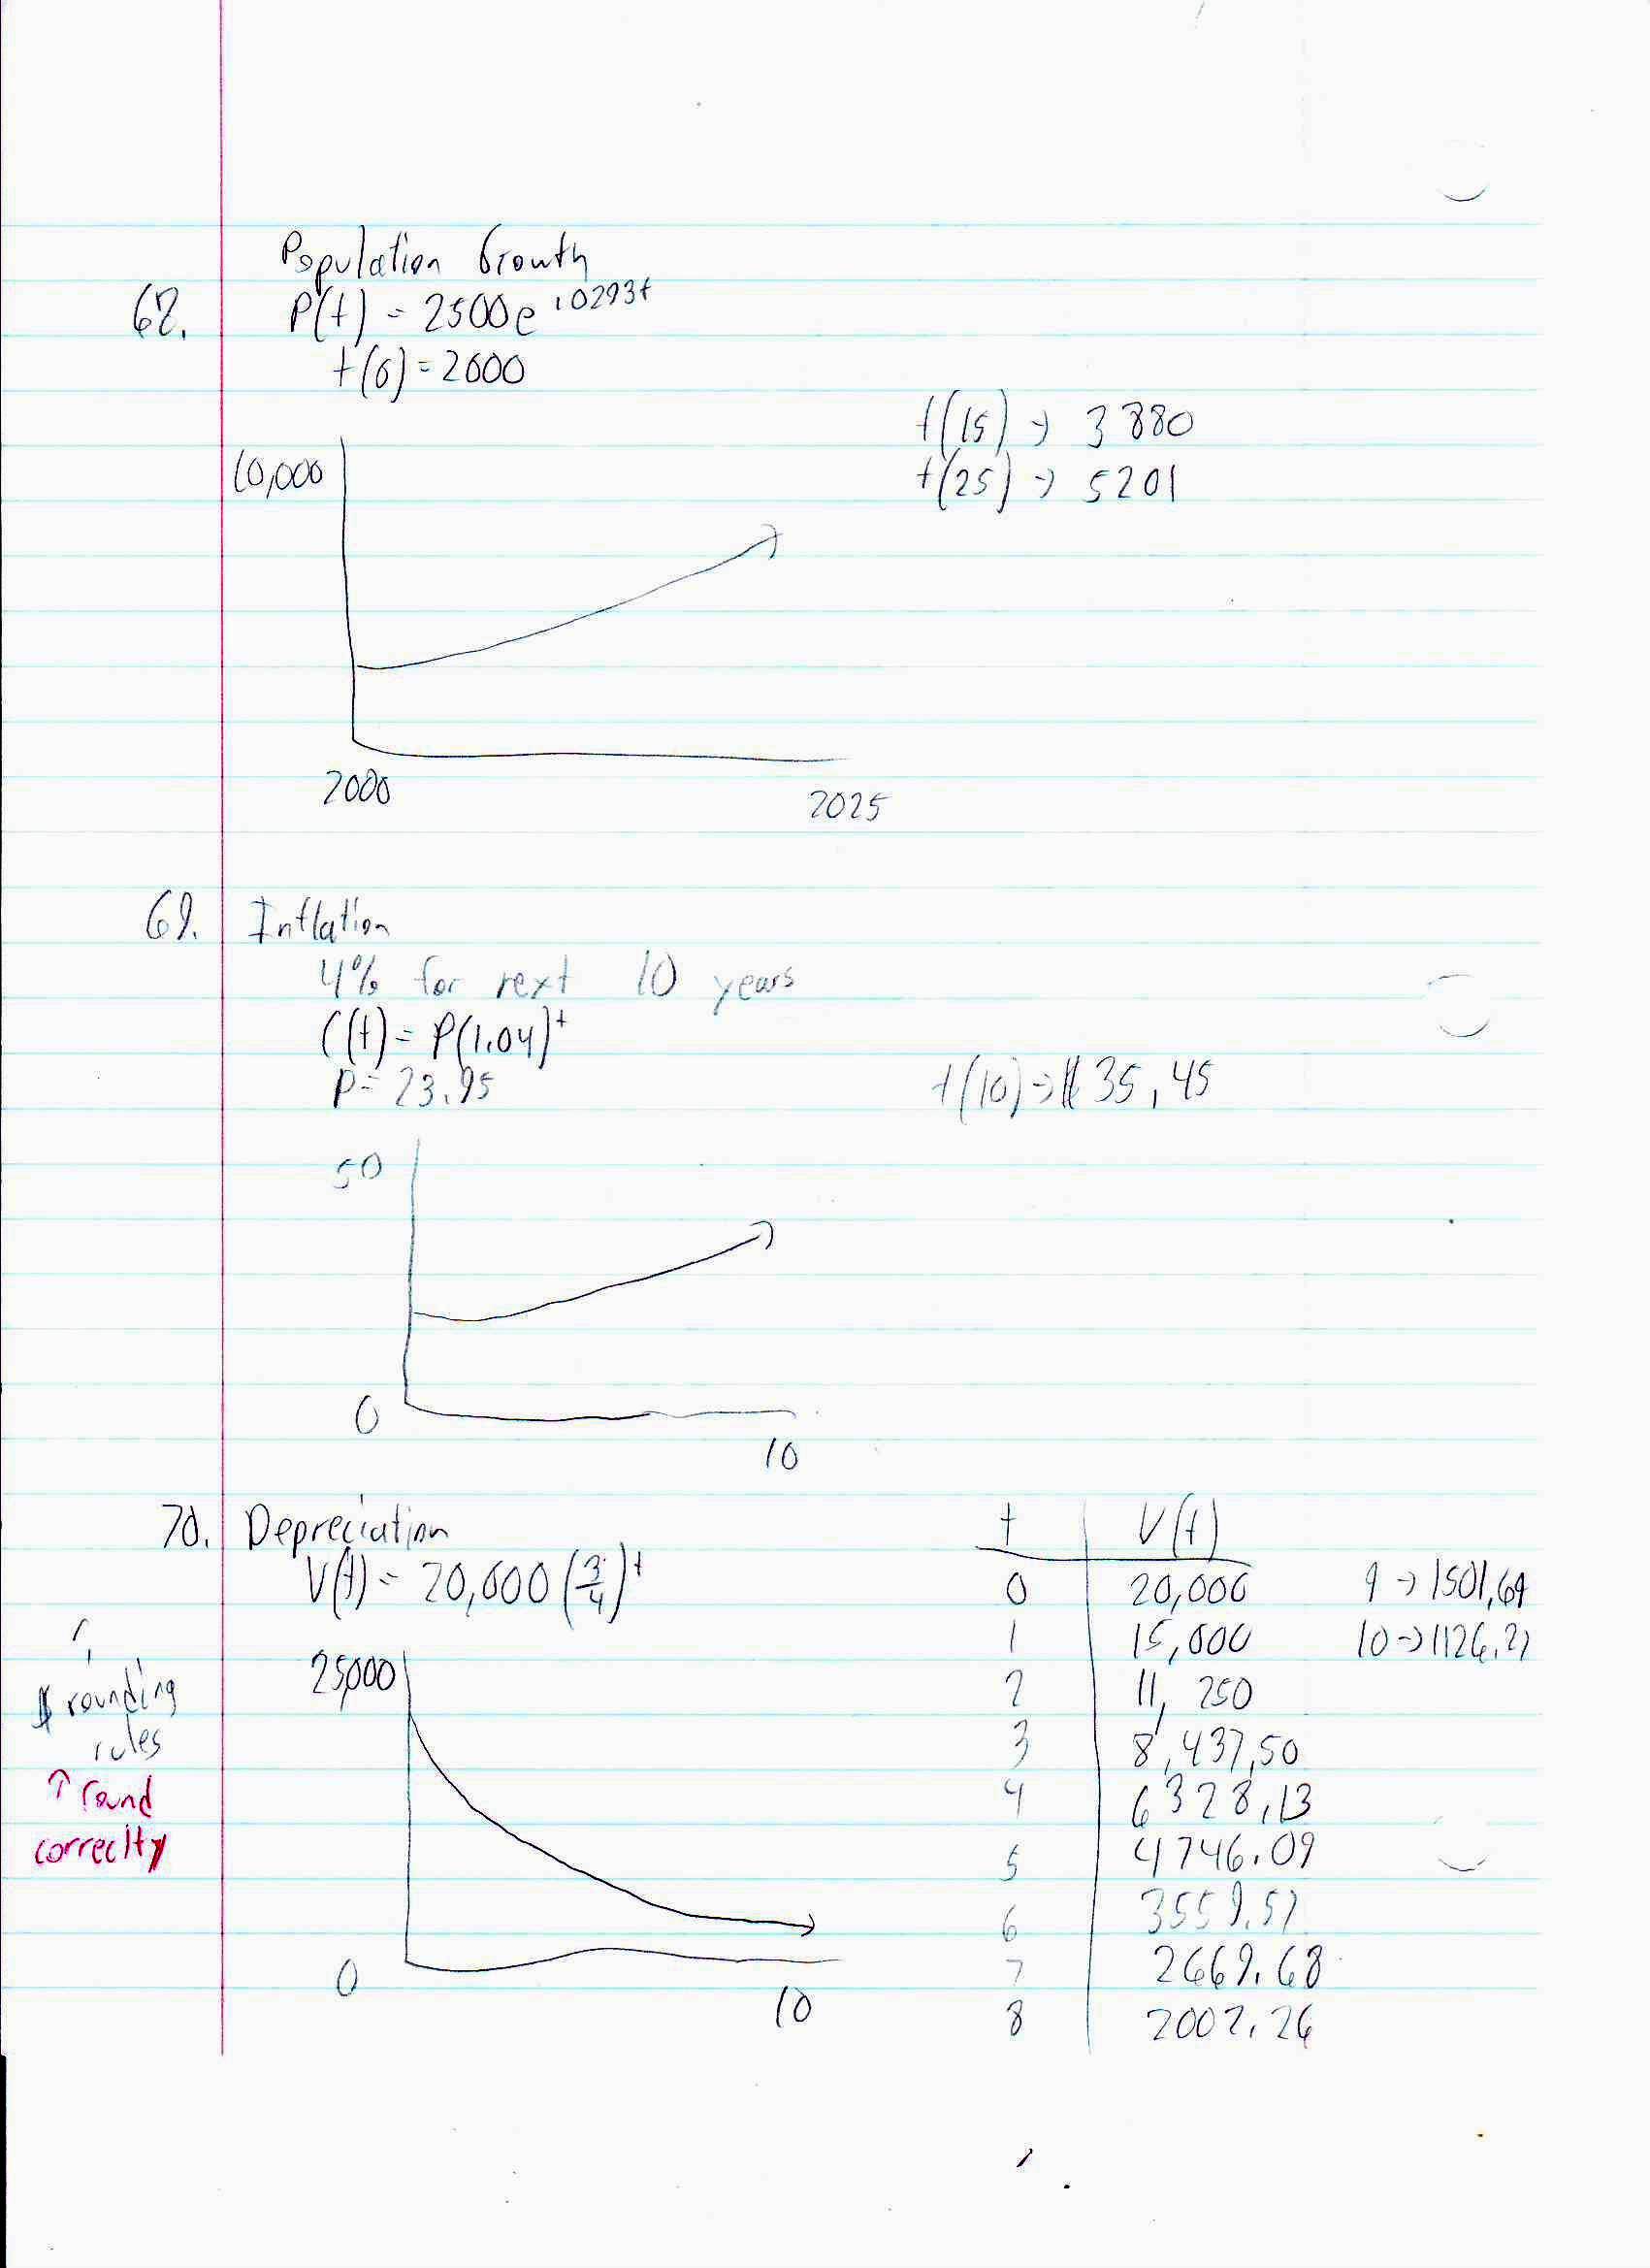 Population Growth
62. P(t) = 2500e^.0293t
t(0) = 2000
t(15) → 3880
t(25) → 5201
10,000
2000 2025
69. Inflation
4% for next 10 years
C(t) = P(1.04)^t
P = 23.95
t(10) → $35.45
50
0
10
70. Depreciation
V(t) = 20,000 (3/4)^t
$ rounding
rules
↑ round
correclty
25,000
0
10
t V(t)
0 20,000 9 → 1501.69
1 15,000 10 → 1126.27
2 11,250
3 8,437.50
4 6328.13
5 4746.09
6 3559.57
7 2669.68
8 2002.26